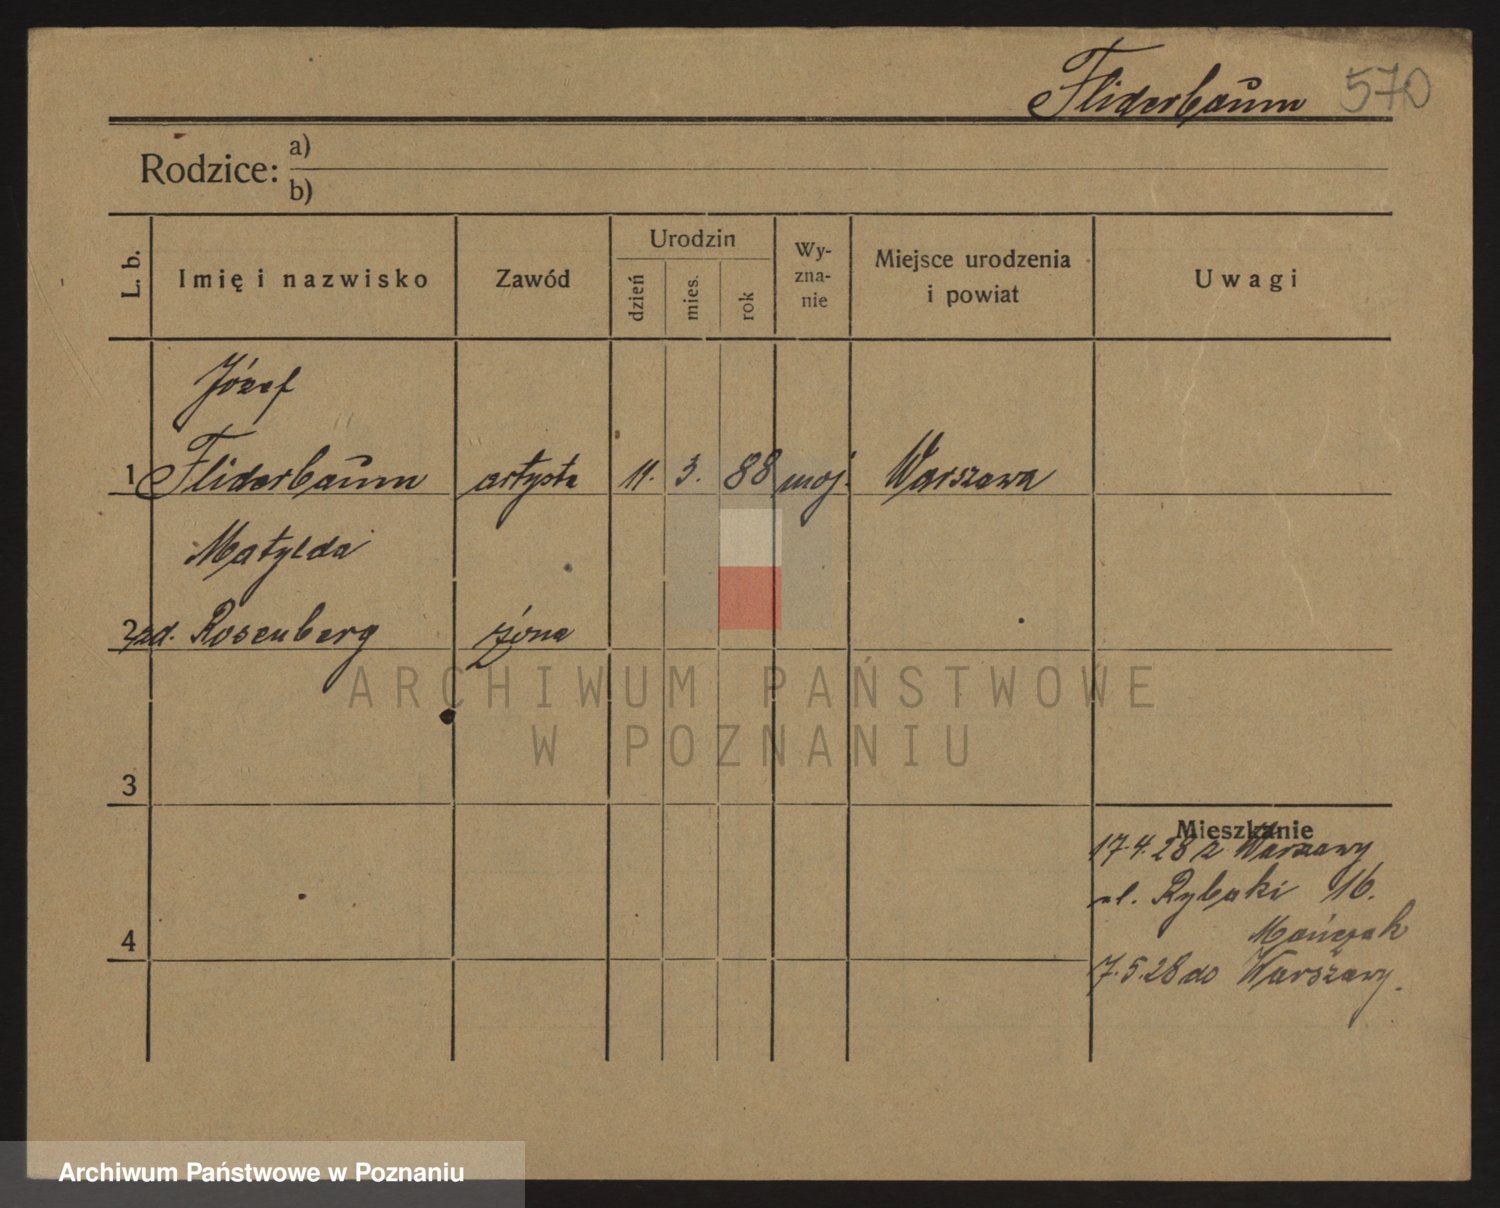 Fliderbaum 570
Rodzice: a)
b)
L. b.
Imię i nazwisko
Zawód
Urodzin
dzień
mies.
rok
Wy-
zna-
nie
Miejsce urodzenia
i powiat
Uwagi
Józef
1 Fliderbaum artysta 11. 3. 88 moj. Warszawa
Matylda
2 zd. Rosenberg żona
ARCHIWUM PAŃSTWOWE
W POZNANIU
3
Mieszkanie
17.4.28 z Warszawy
ul. Rybaki 16.
Mańczak
4
7.5.28 do Warszawy.
Archiwum Państwowe w Poznaniu